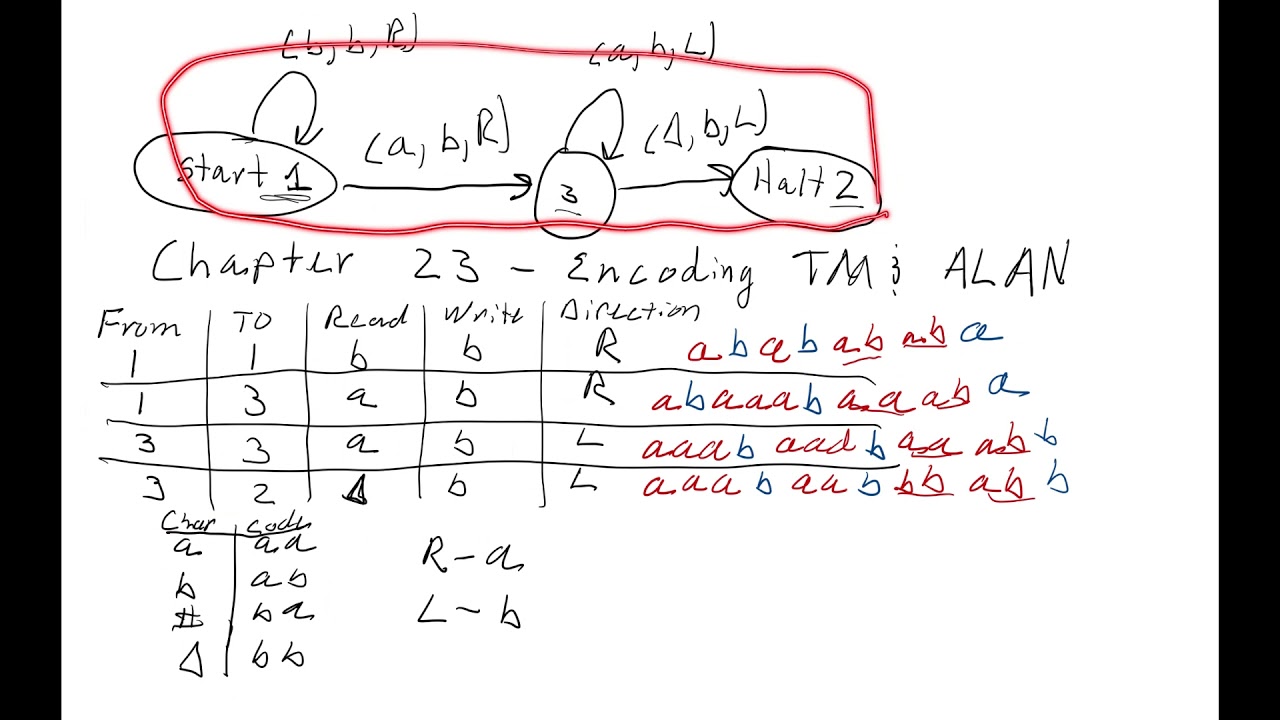 (b, b, R) (a, b, L)
(a, b, R) (Δ, b, L)
Start 1 3 Halt 2
Chapter 23 - Encoding TM & ALAN
From TO Read Write Direction
1 1 b b R abababab a
1 3 a b R abaaabaaab a
3 3 a b L aaab aaab aa ab b
3 2 Δ b L aaab aab bb ab b
Char Code
a aa
b ab
# ba
Δ bb
R - a
L - b